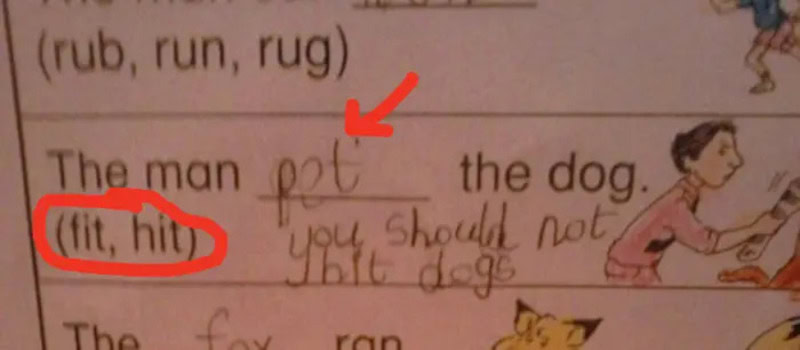 (rub, run, rug)
The man pet the dog.
(fit, hit) you should not
hit dogs
The fox ran